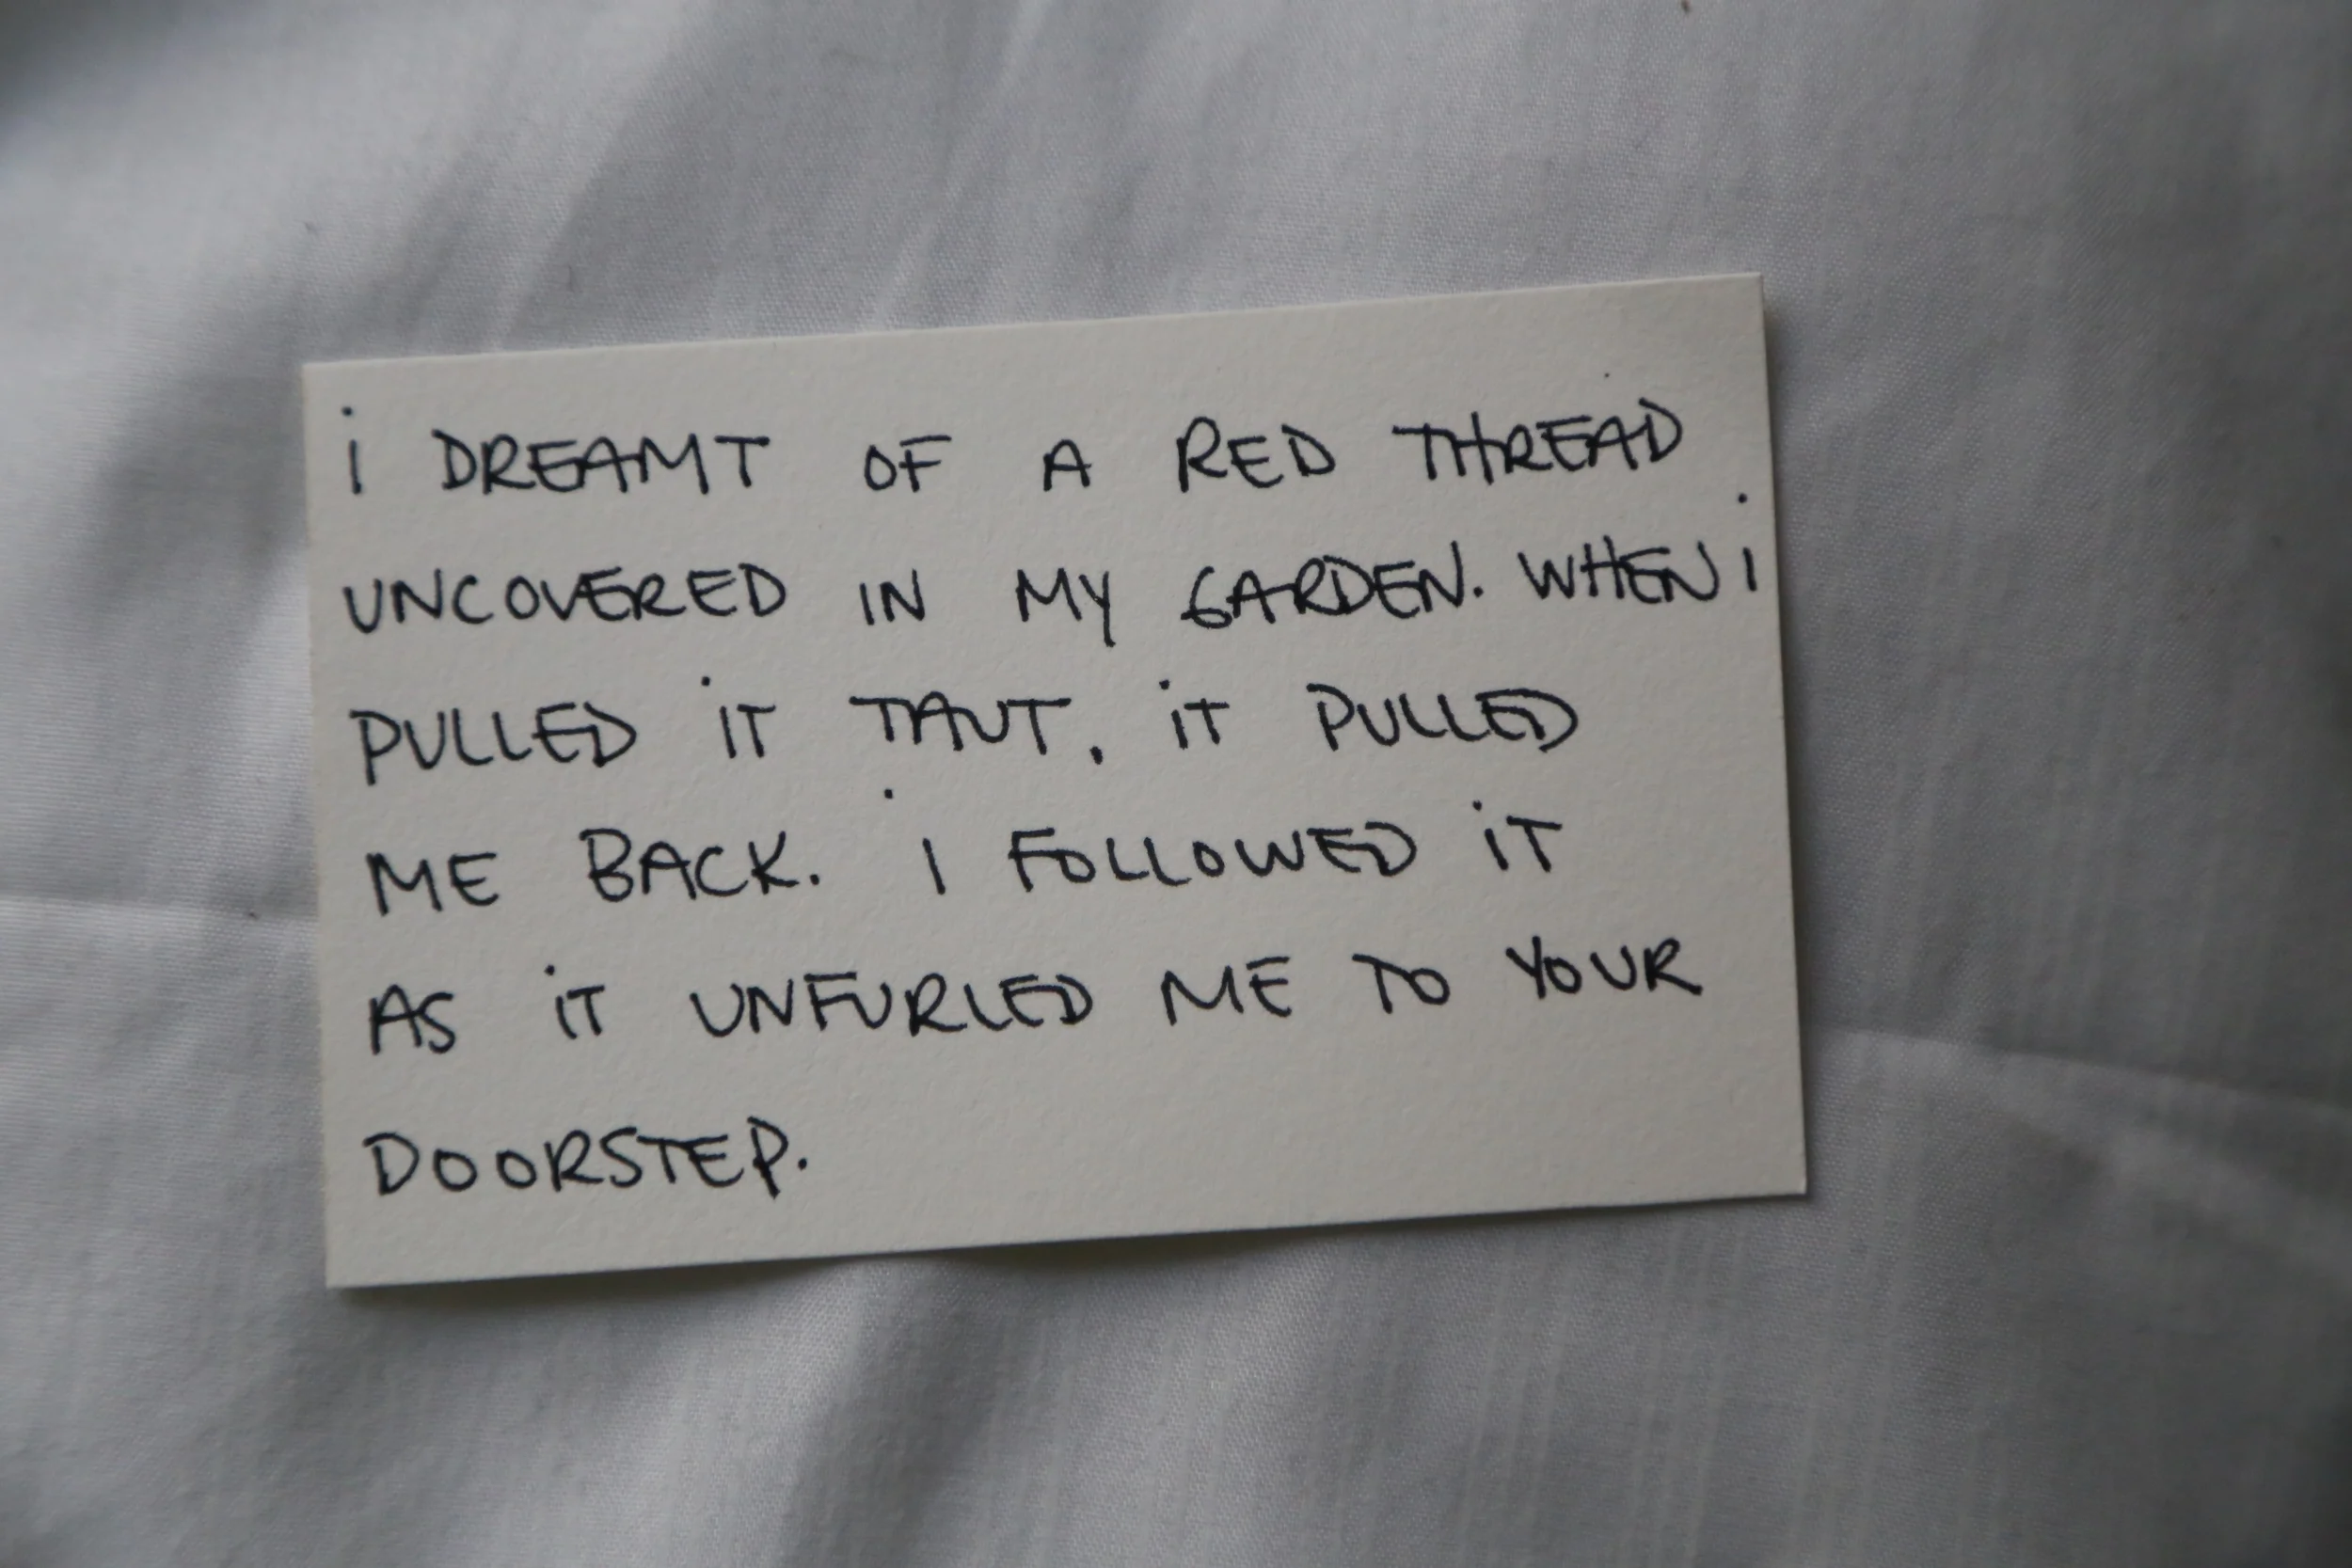 i DREAMT OF A RED THREAD
UNCOVERED IN MY GARDEN. WHEN i
PULLED iT TAUT, iT PULLED
ME BACK. i FOLLOWED iT
AS iT UNFURLED ME TO YOUR
DOORSTEP.